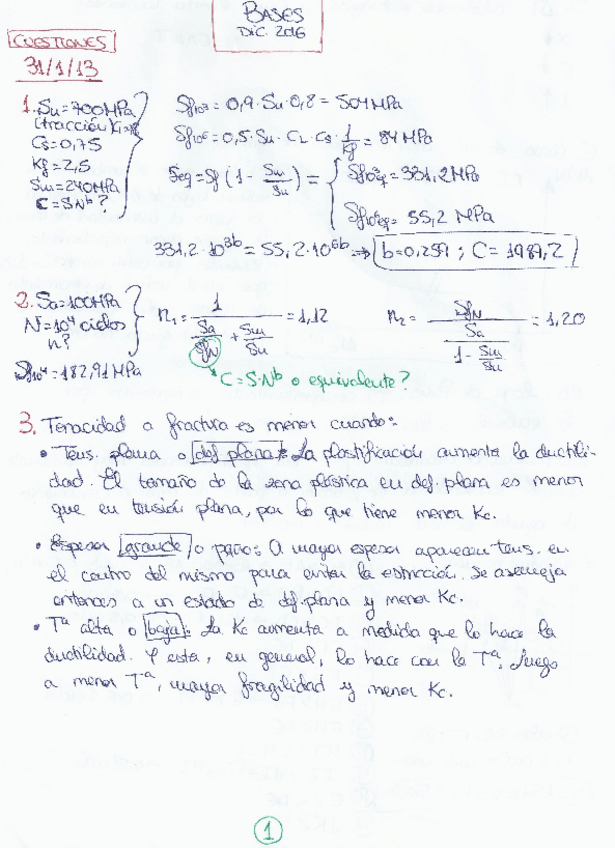 BASES
DIC. 2016
CUESTIONES
31/1/13
1. Su = 700MPa
(tracción)
Cs = 0,75
Kf = 2,5
Sm = 240MPa
C = S·N^b ?
Sf10³ = 0,9·Su·0,8 = 504MPa
Sf10⁶ = 0,5·Su·CL·Cs·1/Kf = 84MPa
Seq = Sf (1 - Sm/Su) = { Sf10³eq = 331,2MPa
Sf10⁶eq = 55,2 MPa
331,2·10^3b = 55,2·10^6b ⇒ b=0,259 ; C = 1989,2
2. Sa = 100MPa
N = 10⁴ ciclos
n?
Sf10⁴ = 182,91MPa
n₁ = 1 / (Sa/SfN + Sm/Su) = 1,12
n₂ = SfN / (Sa / (1 - Sm/Su)) = 1,20
C = S·N^b o equivalente?
3. Tenacidad a fractura es menor cuando:
• Tens. plana o def. plana: La plastificación aumenta la ductili-
dad. El tamaño de la zona plástica en def. plana es menor
que en tensión plana, por lo que tiene menor Kc.
• Espesor grande o peqño: A mayor espesor aparecen tens. en
el centro del mismo para evitar la estricción. Se asemeja
entonces a un estado de def. plana y menor Kc.
• Tª alta o baja: La Kc aumenta a medida que lo hace la
ductilidad. Y esta, en general, lo hace con la Tª, luego
a menor Tª, mayor fragilidad y menor Kc.
1